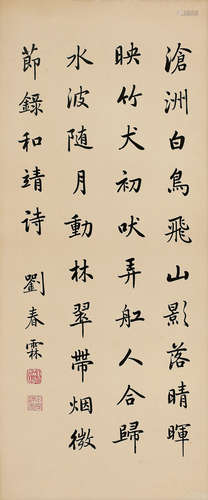 滄洲白鳥飛山影落晴暉
映竹犬初吠弄舡人合歸
水波随月動林翠帶烟微
節錄和靖诗 劉春霖